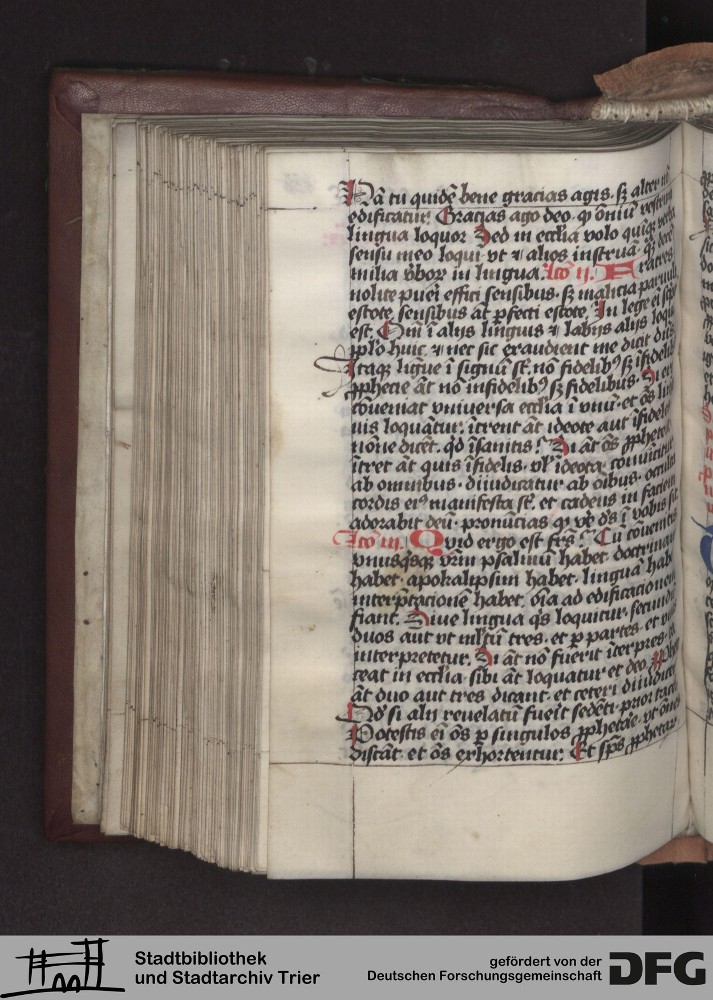 Nā tu quidē bene gracias agis· sʒ alter nō
edificatur. Gracias ago deo· ꝙ oīm̄ vestrum
lingua loquor Sed in ecclīa volo quīqʒ verba
sensu meo loqui· vt ⁊ alios instruā· ꝗ̄ decē
milia v̓boꝝ in lingua. lcō ij. Fratres
nolite pueri effici sensibus· sʒ malicia paruuli
estote, sensibus āt ꝑfecti estote, In lege ei̅ scptū
est. Qm̄ ī alijs linguis ⁊ labijs alijs loquar
pplo huic· ⁊ nec sic exaudient me dicit dn̄s
Itaqʒ ligue ī signū st̄· nō fidelibꝰ sʒ īfidelibꝰ
ꝓphecie āt nō infidelibꝰ sʒ fidelibus. Si ergo
cōueniat vniuersa ecclīa ī vnū· et ōs lin
uis loquātur. ītrent āt ideote aut īfideles
nōne dicēt· qd̓ īsanitis? Si āt ōs ꝓphetēt
ītret āt quis īfidelis· vl̓ ideota conuincitur
ab omnibus· diiudicatur ab oībus· occulta
cordis eiꝰ manifesta st̄· et cadens in faciem
adorabit deū· pronūcias ꝙ v̓e ds̄ ī vobis sit
lcō iij. Quid ergo est frs̄? Cū cōuenitis
vnusq̓sqʒ vr̄m psalmū habet· doctrinam
habet· apokalipsim habet· linguā habet
interp̄tacionē habet, oīa ad edificacionem
fiant. Siue lingua q̓s loquitur· secundū
duos aut vt ml̓tū tres· et ꝑ partes· et vnus
interpretetur. Si āt nō fuerit īterpres· ta
ceat in ecclīa· sibi āt loquatur et deo ꝓphe
āt duo aut tres dicant· et ceteri diiudicēt
Qd̓ si alij reuelatū fuerit sedēti· prior taceat
Potestis ei̅ ōs ꝑ singulos ꝓphetāe· vt ōnes
discāt· et ōs exhortentur. Et sp̄s ꝓphetaꝝ
Stadtbibliothek
und Stadtarchiv Trier
gefördert von der
Deutschen Forschungsgemeinschaft
DFG